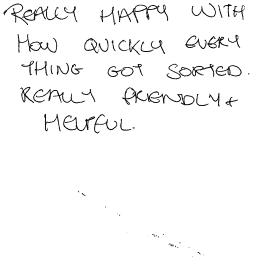 REALLY HAPPY WITH
HOW QUICKLY EVERY
THING GOT SORTED.
REALLY FRIENDLY +
HELPFUL.